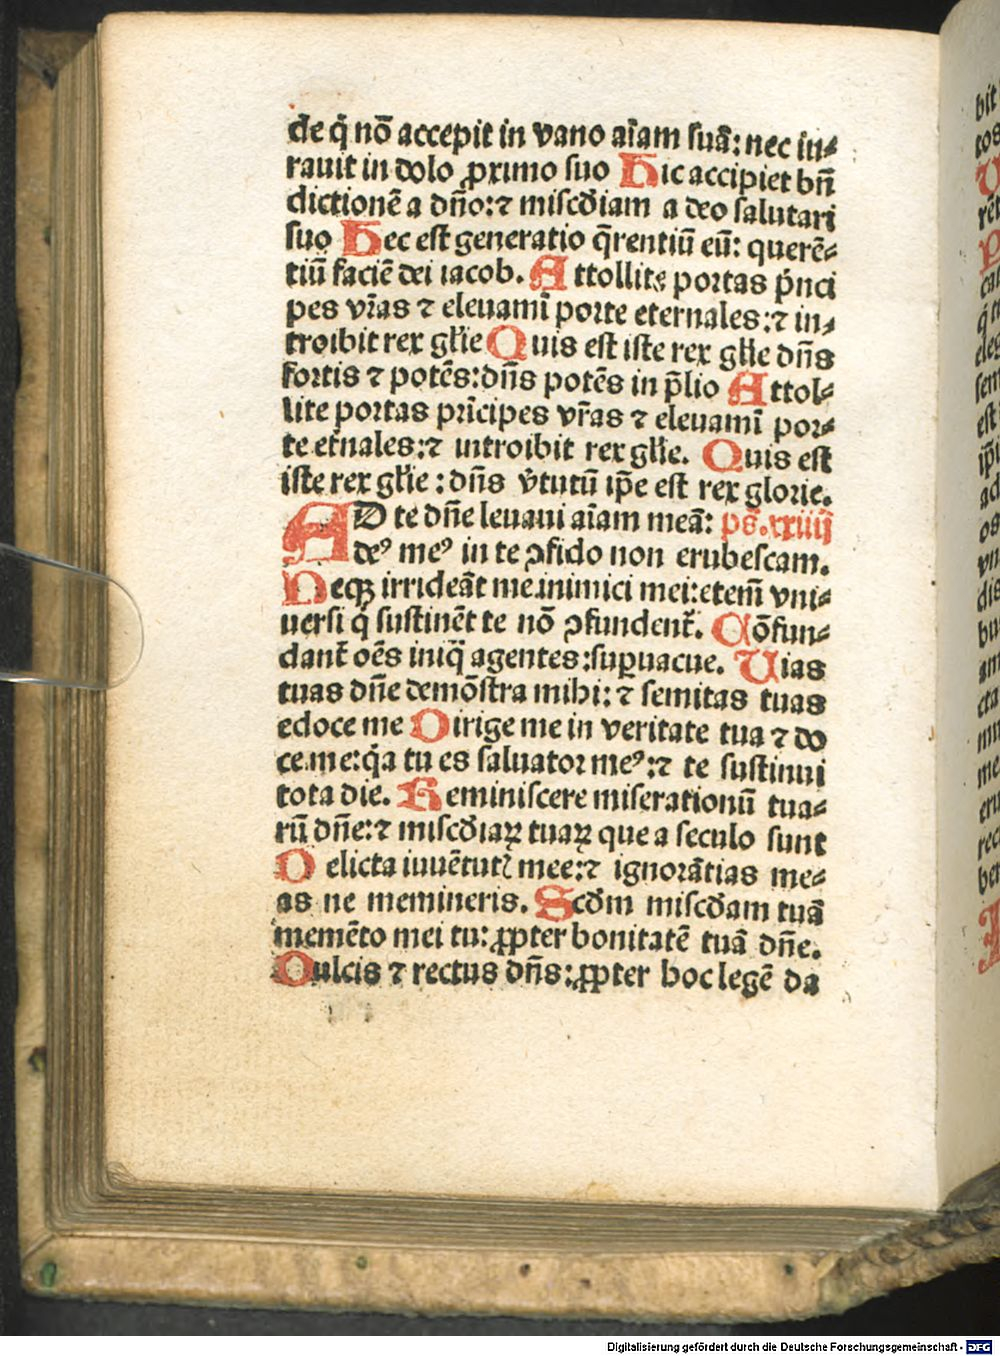 de q̃ nō accepit in vano aīam suā: nec iu⸗
rauit in dolo ꝓximo suo Hic accipiet bn̄
dictionē a dño:⁊ misc̄diam a deo salutari
suo Hec est generatio q̄rentiū eū: querē⸗
tiū faciē dei iacob. Attollite portas p̄nci
pes vr̄as ⁊ eleuamī porte eternales:⁊ in⸗
troibit rex gl̄ie Quis est iste rex gl̄ie dñs
fortis ⁊ potēs:dñs potēs in p̄lio Attol⸗
lite portas prīcipes vr̄as ⁊ eleuamī por⸗
te et̄nales:⁊ introibit rex gl̄ie. Quis est
iste rex gl̄ie : dñs v̄tutū ip̄e est rex glorie.
AD te dñe leuaui aīam meā: ps̄.xxiiij
deꝰ meꝰ in te ꝯfido non erubescam.
Neqꝫ irrideāt me inimici mei:etenī vni⸗
uersi q̄ sustinēt te nō ꝯfundent̄. Cōfun⸗
dant̄ oēs iniq̄ agentes:suꝑuacue. Uias
tuas dñe demōstra mihi:⁊ semitas tuas
edoce me Dirige me in veritate tua ⁊ do
ce me:q̄a tu es saluator meꝰ:⁊ te sustinui
tota die. Reminiscere miserationū tua⸗
rū dñe:⁊ misc̄diaꝝ tuaꝝ que a seculo sunt
Delicta iuuētutꝭ mee:⁊ ignorātias me⸗
as ne memineris. Scd̄m misc̄dam tuā
memēto mei tu: ꝓpter bonitatē tuā dñe.
Dulcis ⁊ rectus dñs:ꝓpter hoc legē da
bit
tos
rēt
q̄ t
eleg
sem
est
ad
os
vn
dis
bu
am
cta
me
rec
ber
Digitalisierung gefördert durch die Deutsche Forschungsgemeinschaft - DFG